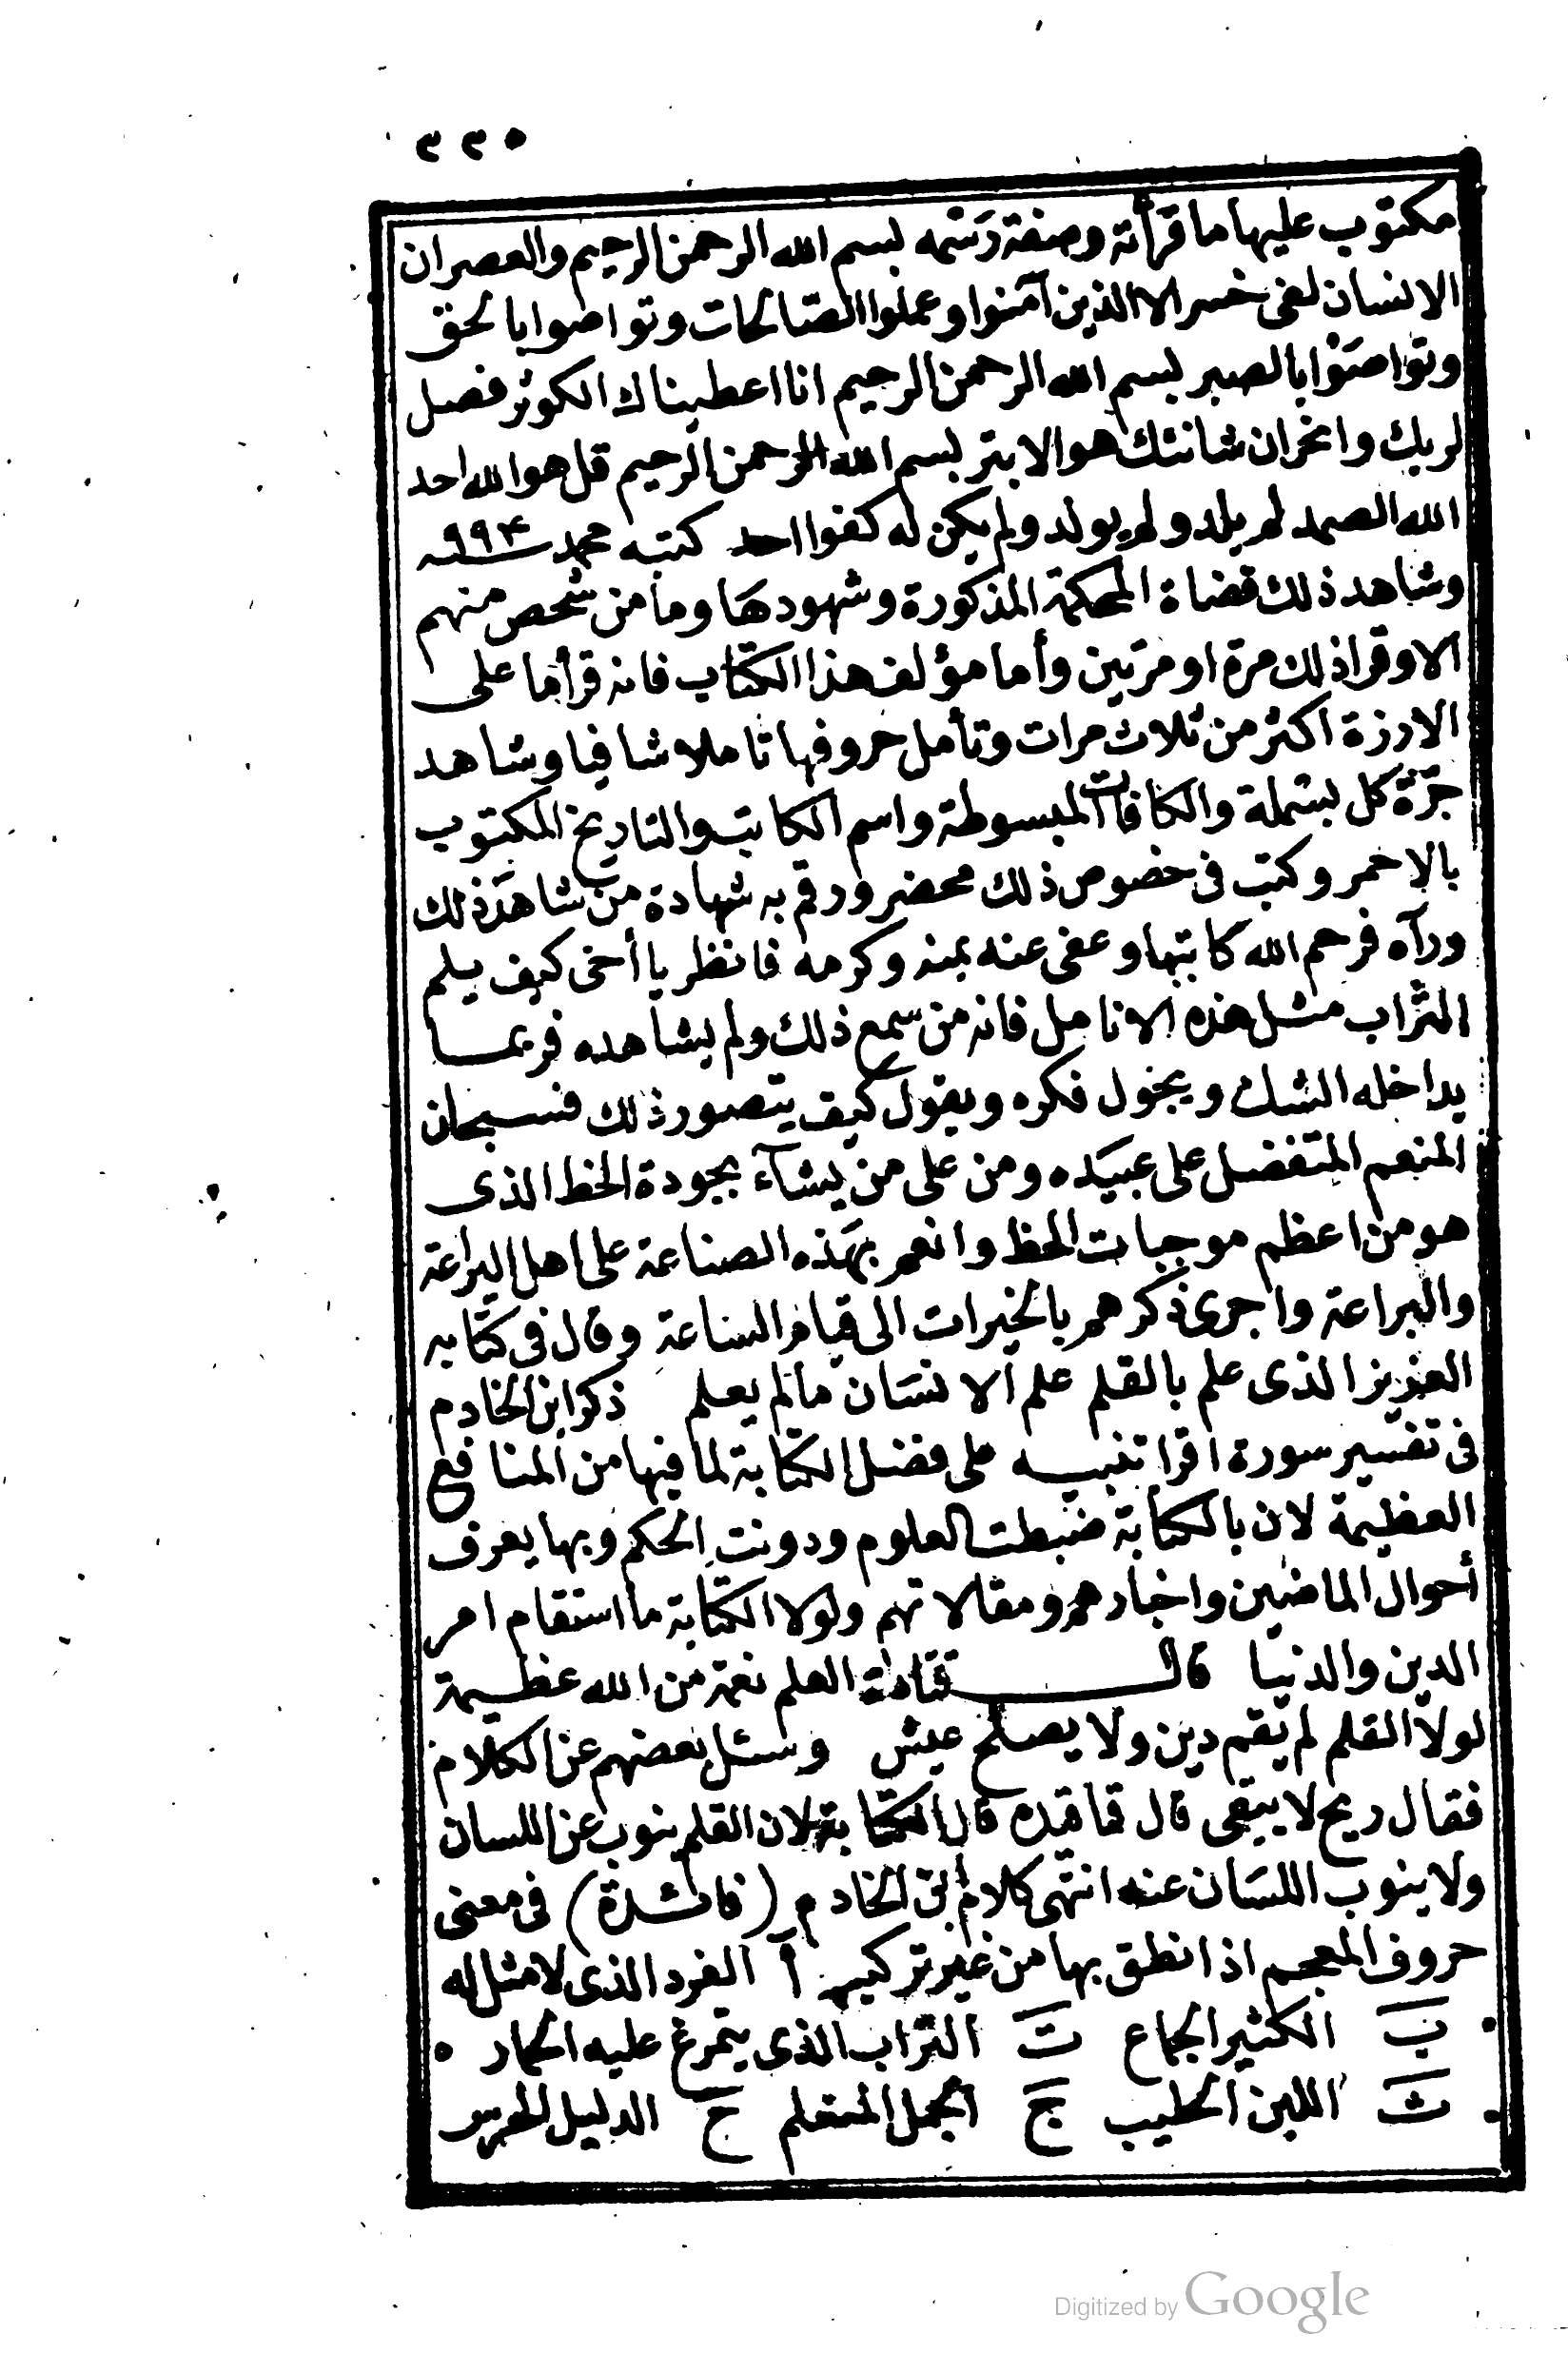 ٣٣٥
مكتوب عليها ما قرأته وصفة رسمه بسم الله الرحمن الرحيم والعصر ان
الانسان لفى خسر الا الذين آمنوا وعملوا الصالحات وتواصوا بالحق
وتواصوا بالصبر بسم الله الرحمن الرحيم انا اعطيناك الكوثر فصل
لربك وانحر ان شانئك هو الابتر بسم الله الرحمن الرحيم قل هو الله احد
الله الصمد لم يلد ولم يولد ولم يكن له كفوا احد كتبه محمد سنة ٩٩٤
وشاهد ذلك قضاة المحكمة المذكورة وشهودها وما من شخص منهم
الا وقرا ذلك مرة او مرتين وأما مؤلف هذا الكتاب فانه قرأ ما على
الارزة اكثر من ثلاث مرات وتأمل حروفها تاملا شافيا وشاهد
جرّة كل بسملة والكافات المبسوطة واسم الكاتب والتاريخ المكتوب
بالاحمر وكتب فى خصوص ذلك محضر ورقم به شهادة من شاهد ذلك
ورآه فرحم الله كاتبها وعفى عنه بمنه وكرمه فانظر يا أخى كيف يسلم
التراب مثل هذه الانامل فانه من سمع ذلك ولم يشاهده فربما
يداخله الشك ويجول فكره ويقول كيف يتصور ذلك فسبحان
المنعم المتفضل على عبيده ومن على من يشآء بجودة الخط الذى
هو من اعظم موجبات الحظ وانعم بهذه الصناعة على اهل اليراعة
والبراعة واجرى ذكرهم بالخيرات الى قيام الساعة وقال فى كتابه
العزيز الذى علم بالقلم علم الانسان مالم يعلم ذكر ابن الخادم
فى تفسير سورة اقرا تنبيه على فضل الكتابة لما فيها من المنافع
العظيمة لان بالكتابة ضبطت العلوم ودونت الحكم وبها يعرف
أحوال الماضين واخبارهم ومقالاتهم ولولا الكتابة ما استقام امر
الدين والدنيا قال قتادة العلم نعمة من الله عظيمة
لولا القلم لم يقم دين ولا يصلح عيش وسئل بعضهم عن الكلام
فقال ريح لا يبقى قال فما قيده قال الكتابة لان القلم ينوب عن اللسان
ولا ينوب اللسان عنه انتهى كلام ابن الخادم (فائدة) فى معنى
حروف المعجم اذا نطق بها من غير تركيب أ الفرد الذى لا مثل له
ب الكثير الجماع ت التراب الذى يتمرغ عليه الحمار
ث اللبن الحليب ج الجمل المتعلم ح الدليل
Digitized by Google